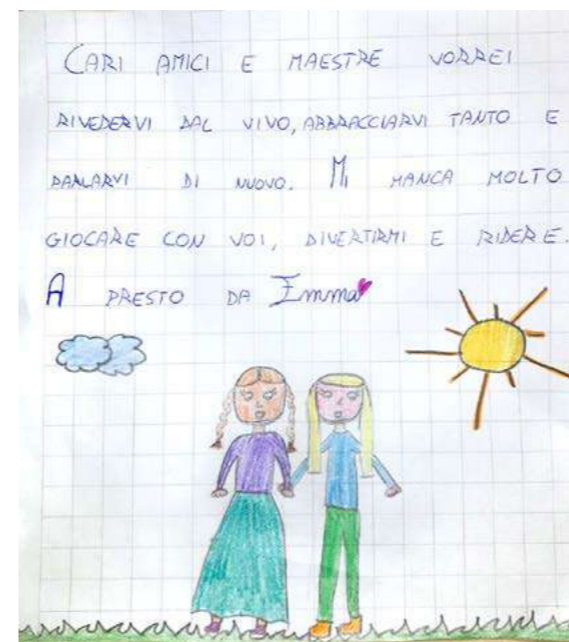 CARI AMICI E MAESTRE VORREI
RIVEDERVI DAL VIVO, ABBRACCIARVI TANTO E
PARLARVI DI NUOVO. MI MANCA MOLTO
GIOCARE CON VOI, DIVERTIRMI E RIDERE.
A PRESTO DA Emma